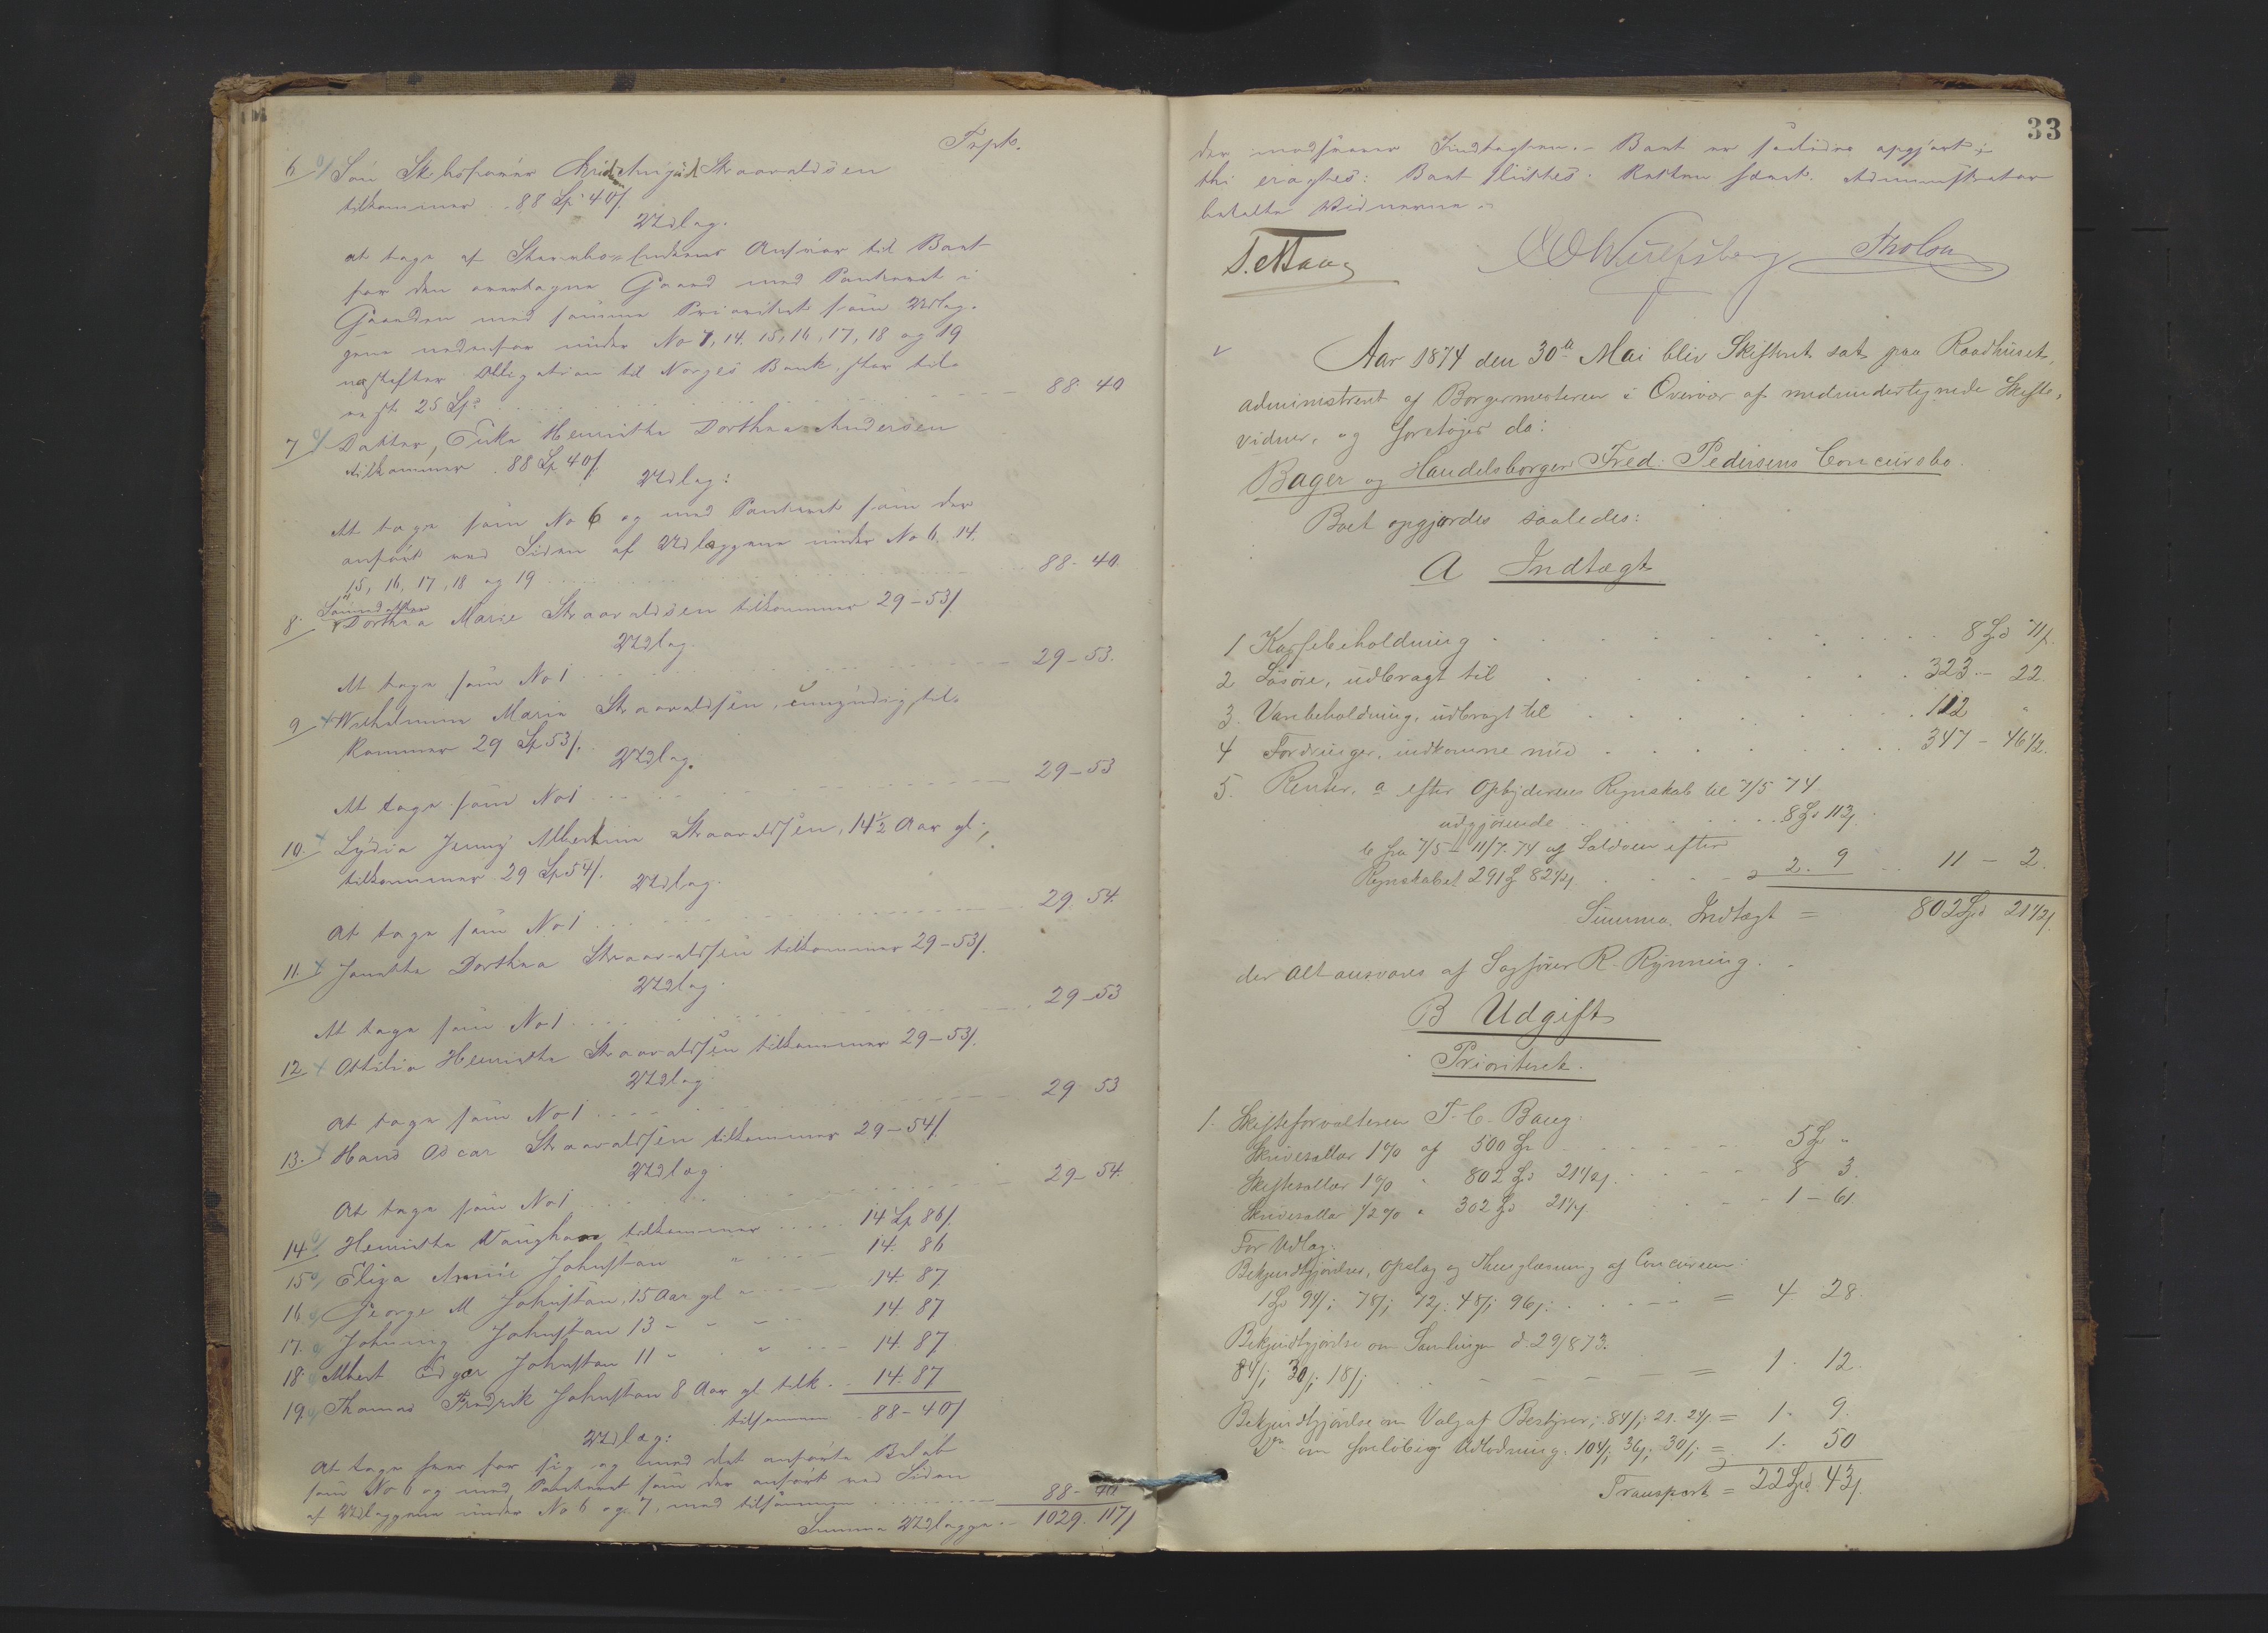 Trspt.
6 Søn Skibsfører Christian Straavaldsen
tilkommer 88 Sp 40 /.
Udlæg.
at tage af Stervbo-Enkens Ansvar til Boet
for den overtagne Gaard med Panteret i
Gaarden med samme Prioritet som Udlæg-
gene nedenfor under No 7, 14. 15, 16, 17, 18 og 19
næstefter Obligation til Norges Bank, stor til-
rest 25 Sp. 88 40
7 Datter, Enke Henriette Dorthea Andersen
tilkommer 88 Sp 40 /.
Udlæg:
At tage som No 6 og med Panteret som der
anført ved Siden af Udlæggene under No 6, 14.
15, 16, 17, 18 og 19 88 - 40.
8. Sønnedatter Dorthea Marie Straavaldsen tilkommer 29 - 53 /.
Udlæg
At tage som No 1 29 - 53.
9 Wilhelmine Marie Straavaldsen, umyndig, til-
kommer 29 Sp 53 /.
Udlæg.
At tage som No 1 29 - 53
10. Lydia Jenny Albertine Straavaldsen, 14½ Aar gl.,
tilkommer 29 Sp 54 /.
Udlæg.
At tage som No 1 29 54.
11. Janetha Dorthea Straavaldsen tilkommer 29 - 53 /.
Udlæg.
At tage som No 1 29 - 53
12 Othilia Henriette Straavaldsen tilkommer 29 - 53 /.
Udlæg
At tage som No 1 29 53
13. Hans Oscar Straavaldsen tilkommer 29 - 54 /.
Udlæg
At tage som No 1 29 - 54.
14 Henriette Vaughan tilkommer 14 Sp 86 /.
15 Eliza Annie Johnstan " 14. 86
16 George M Johnstan, 15 Aar gl " 14. 87
17. Johnny Johnstan 13 - - " 14. 87
18. Albert Edger Johnstan 11 - " 14. 87
19 Thomas Fredrik Johnstan 8 Aar gl. tilk. 14. 87
tilsammen 88 - 40 /
Udlæg:
At tage hver for sig og med det anførte Beløb
som No 6 og med Panteret som der anført ved Siden
af Udlæggene under No 6 og 7, med tilsammen 88 - 40
Summa Udlægge 1029. 117 /
33
der modsvarer Indtægten. - Boet er saaledes opgjort;
thi eragtes: Boet sluttes. Retten hævet. Administrator
betalte Vidnerne.
T. C. Baug Wulfsberg Tholsen
Aar 1874 den 30te Mai blev Skifteret sat paa Raadhuset,
administreret af Borgermesteren i Overvær af medundertegnede Skifte-
vidner, og foretoges da:
Bager og Handelsborger Fred. Pedersens Concursbo.
Boet opgjordes saaledes:
A Indtægt
1 Kassebeholdning 8 Spd 71 /.
2 Løsøre, udbragt til 323 - 22.
3. Varebeholdning, udbragt til 112 "
4 Fordringer, indkomne med 347 - 46½.
5. Renter, a efter Opbyderens Regnskab til 7/5 74
udgjørende 8 Spd 113 /.
b fra 7/5 - 11/7. 74 af Saldoen efter
Regnskabet 291 Sp 82½ / 2. 9 11 - 2.
Summa Indtægt = 802 Spd 21½ /.
der Alt ansvares af Sagfører R. Rynning.
B Udgift
Prioriteret.
1. Skifteforvalteren T. C. Baug.
Skrivesallær 1 % af 500 Spd 5 Spd "
Skiftesallær 1 % " 802 Spd 21½ /. 8 3.
Skrivesallær ½ % " 302 Spd 21½ / 1 - 61
For Udlæg:
Bekjendtgjørelser, Opslag og Thinglæsning af Concursen:
1 Spd 94 /; 78 /; 12 /; 48 /; 96 /: = 4 28.
Bekjendtgjørelse om Samlingen d. 29/8 73.
84 /; 30 /; 18 /; = 1. 12.
Bekjendtgjørelse om Valg af Bestyrer; 84 /; 21. 24 /. = 1. 9.
Do. om foreløbig Udlodning. 104 /; 36 /; 30 /; = 1. 50
Transport = 22 Spd. 43 /.